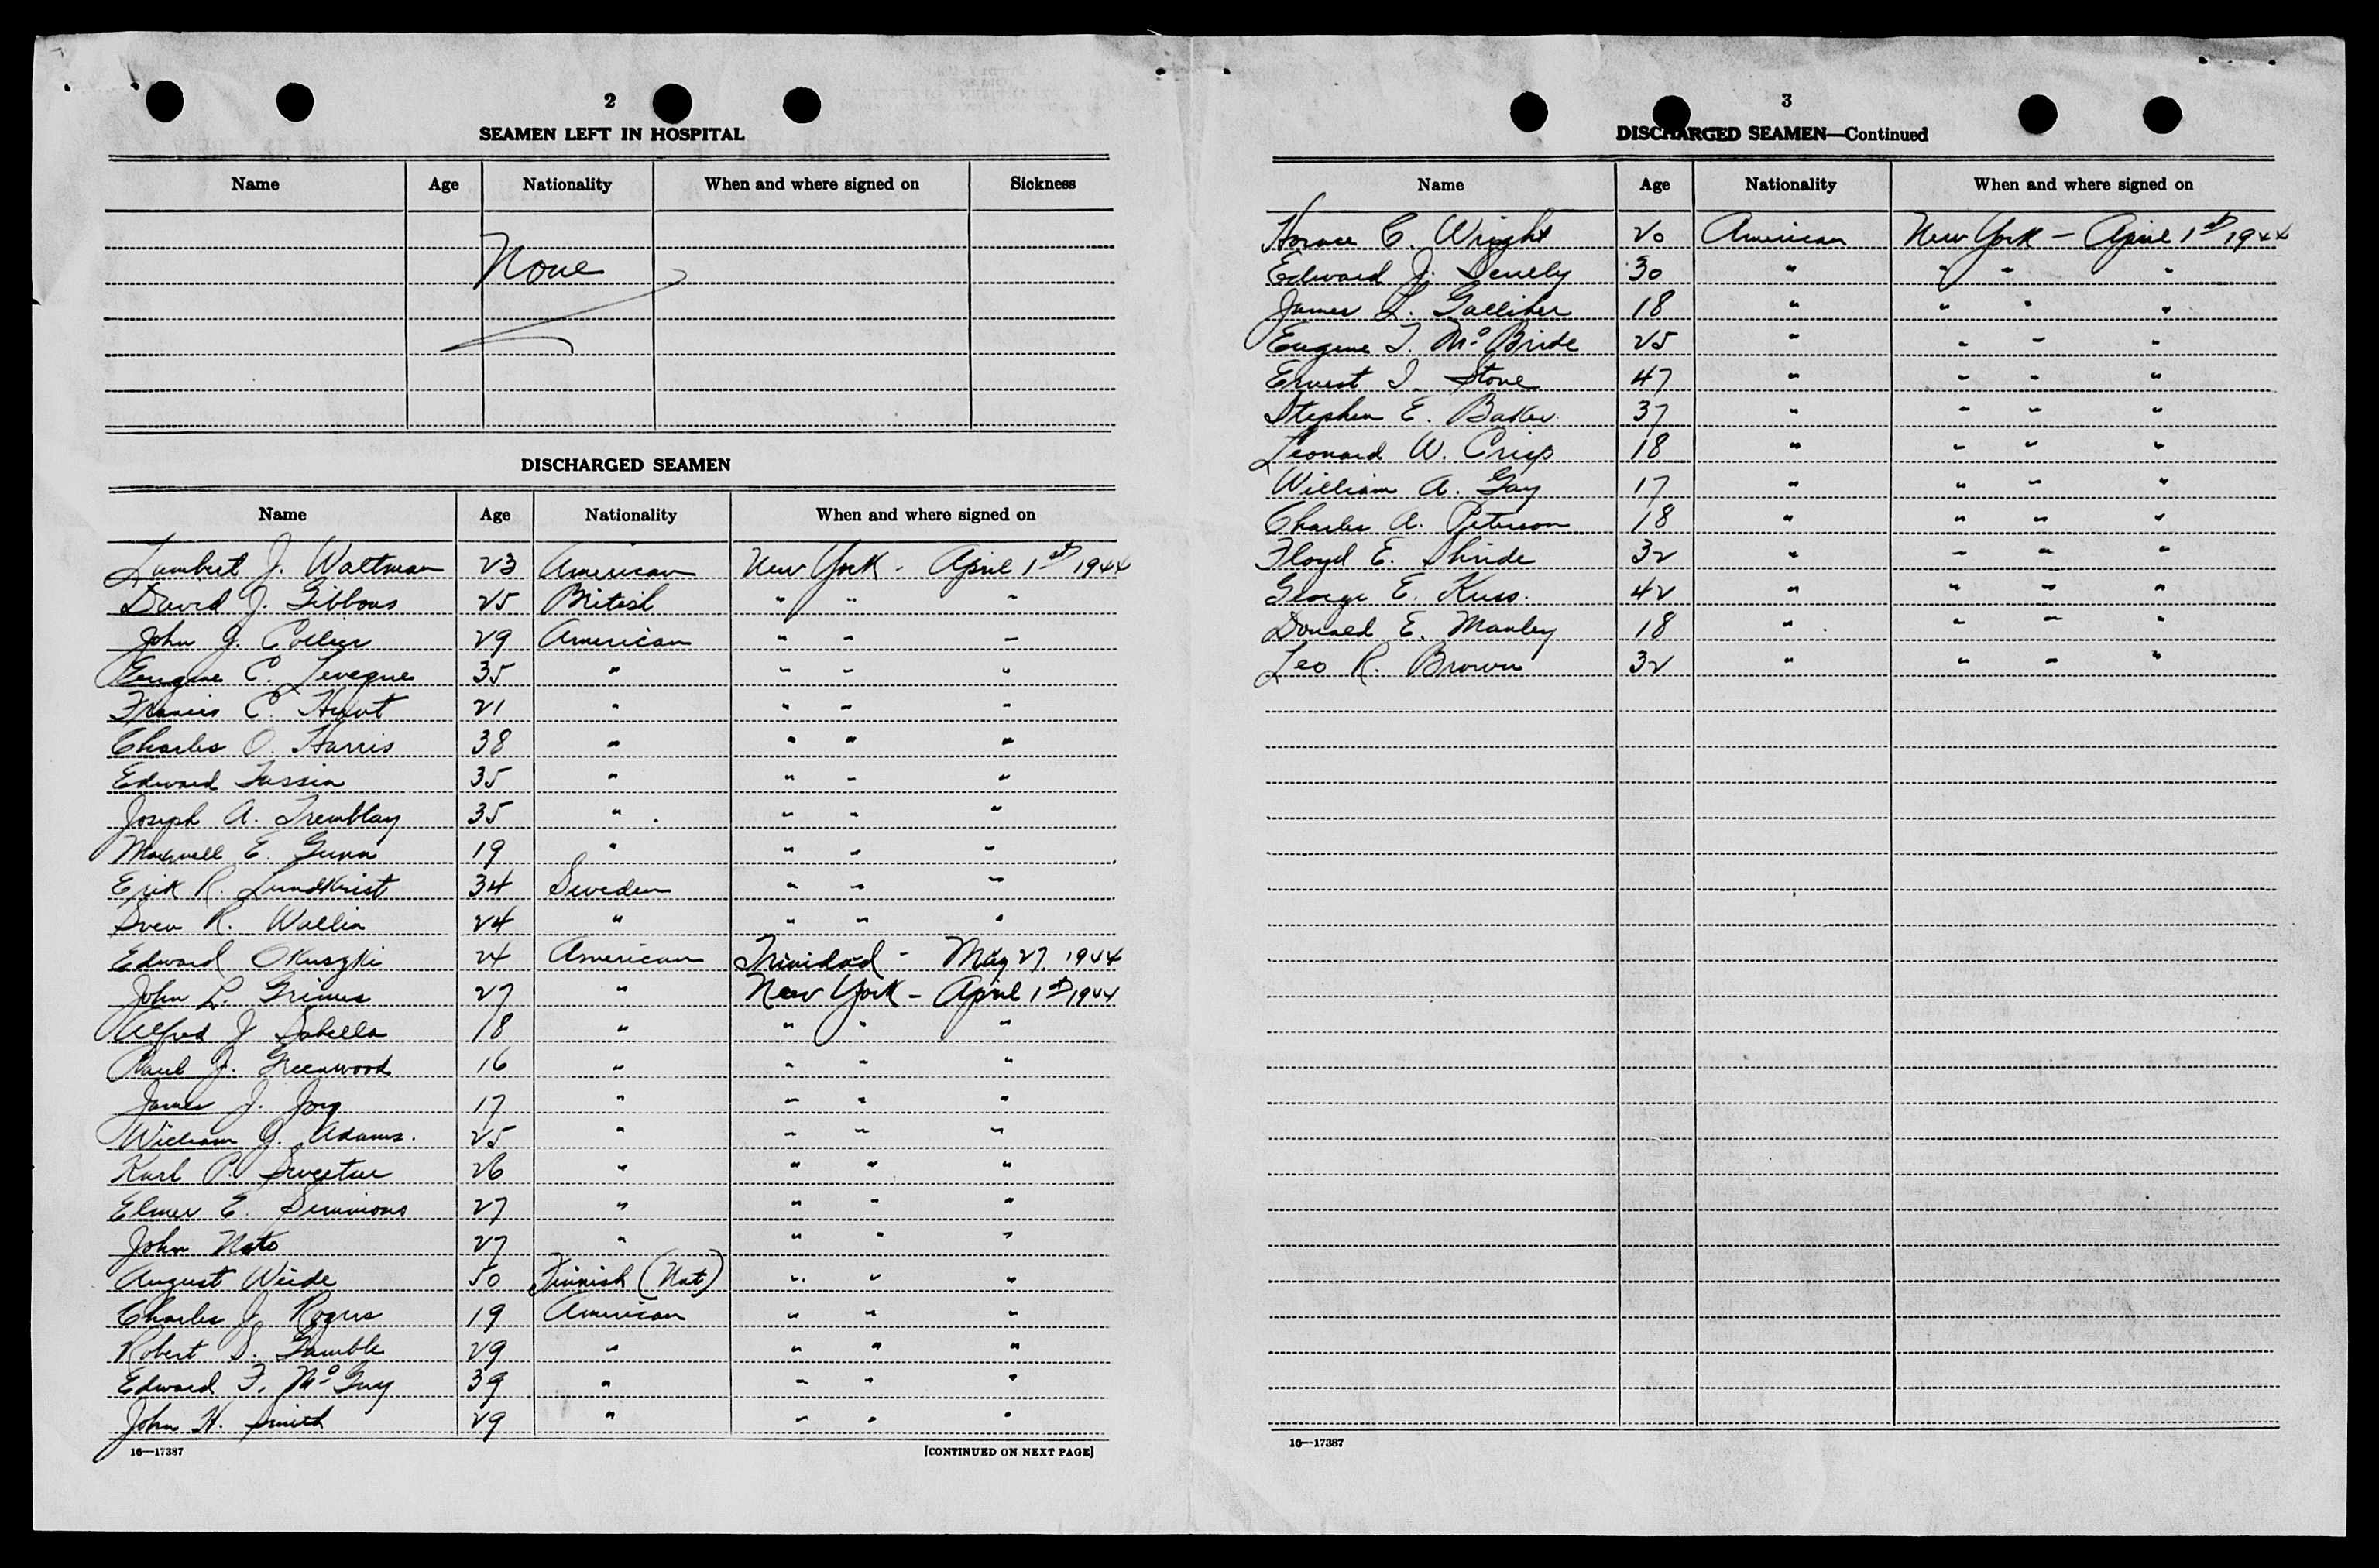 2
SEAMEN LEFT IN HOSPITAL
Name Age Nationality When and where signed on Sickness
None
DISCHARGED SEAMEN
Name Age Nationality When and where signed on
Lambert J. Waltman 23 American New York - April 1st 1944
David J. Gibbons 25 British " " "
John J. Collier 29 American " " "
Eugene C. Levegue 35 " " " "
Francis C. 21 " " " "
Charles O. Harris 38 " " " "
Edward 35 " " " "
Joseph A. Tremblay 35 " " " "
Maxwell E. Gunn 19 " " " "
Erik R. Lundkvist 34 Sweden " " "
Sven R. Wallin 24 " " " "
Edward Okuszki 24 American Trinidad - May 27. 1944
John L. Grimes 27 " New York - April 1st 1944
Alfred J Sabella 18 " " " "
Paul J. Greenwood 16 " " " "
James J. Joy 17 " " " "
William J. Adams. 25 " " " "
Karl P. 26 " " " "
Elmer E. Simmons 27 " " " "
John Nato 27 " " " "
August Wiide 50 Finnish (Nat) " " "
Charles J. Rogers 19 American " " "
Robert S. Gamble 29 " " " "
Edward F. McGuy 39 " " " "
John H. Smith 29 " " " "
16—17387 [CONTINUED ON NEXT PAGE]
3
DISCHARGED SEAMEN—Continued
Name Age Nationality When and where signed on
Horace C. Wright 20 American New York - April 1st 1944
Edward J. 30 " " " "
James L. Galliher 18 " " " "
Eugene T. McBride 25 " " " "
Ernest I. Stone 47 " " " "
Stephen E. Baker. 37 " " " "
Leonard W. Crisp 18 " " " "
William A. Gay 17 " " " "
Charles A. Peterson 18 " " " "
Floyd E. Shride 32 " " " "
George E. Kuss. 42 " " " "
Donald E. Manley 18 " " " "
Leo R. Brown 32 " " " "
16—17387